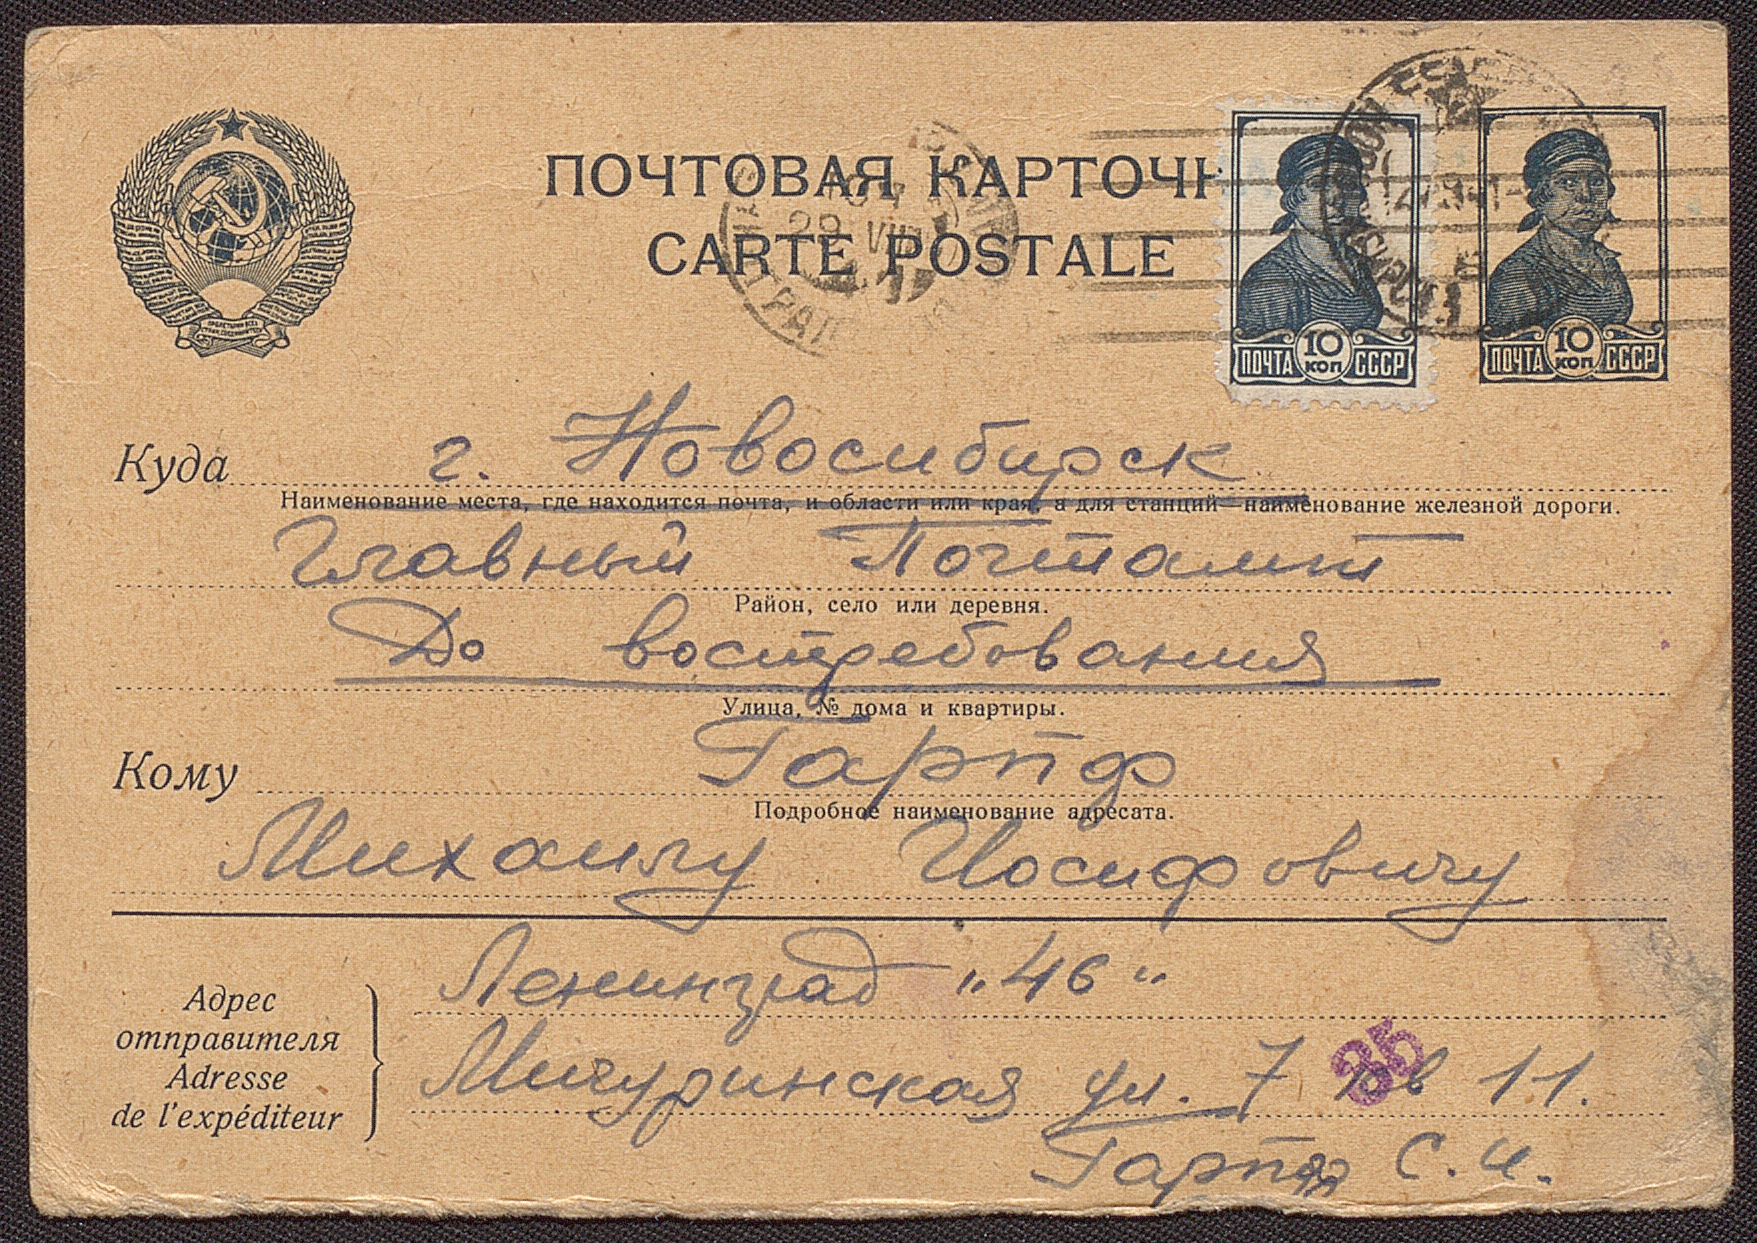 ПОЧТОВАЯ КАРТОЧК
CARTE POSTALE
ПОЧТА 10 КОП СССР
ПОЧТА 10 КОП СССР
29 VIII
Куда г. Новосибирск
Наименование места, где находится почта, и области или края, а для станций—наименование железной дороги.
Главный Почтамт
Район, село или деревня.
До востребования
Улица, № дома и квартиры.
Кому Гарпф
Подробное наименование адресата.
Михаилу Иосифовичу
Ленинград „46“
Адрес отправителя
Adresse de l'expéditeur
Мичуринская ул. 7 кв 11.
35
Гарпф С. И.